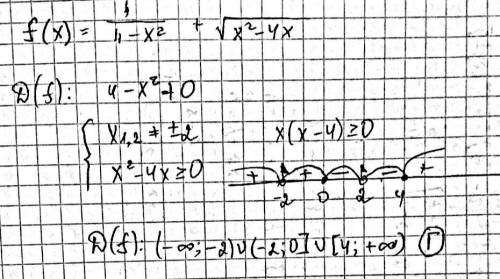 f(x) = 1/(4-x²) + √(x²-4x)
D(f): 4-x²≠0
{ x₁,₂ ≠ ±2
x(x-4)≥0
x²-4x≥0
+ + - - +
-2 0 2 4
D(f): (-∞;-2)∪(-2;0]∪[4;+∞) Г